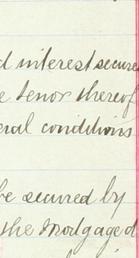 d interest secured
e tenor thereof
eral conditions
be secured by
the Mortgaged